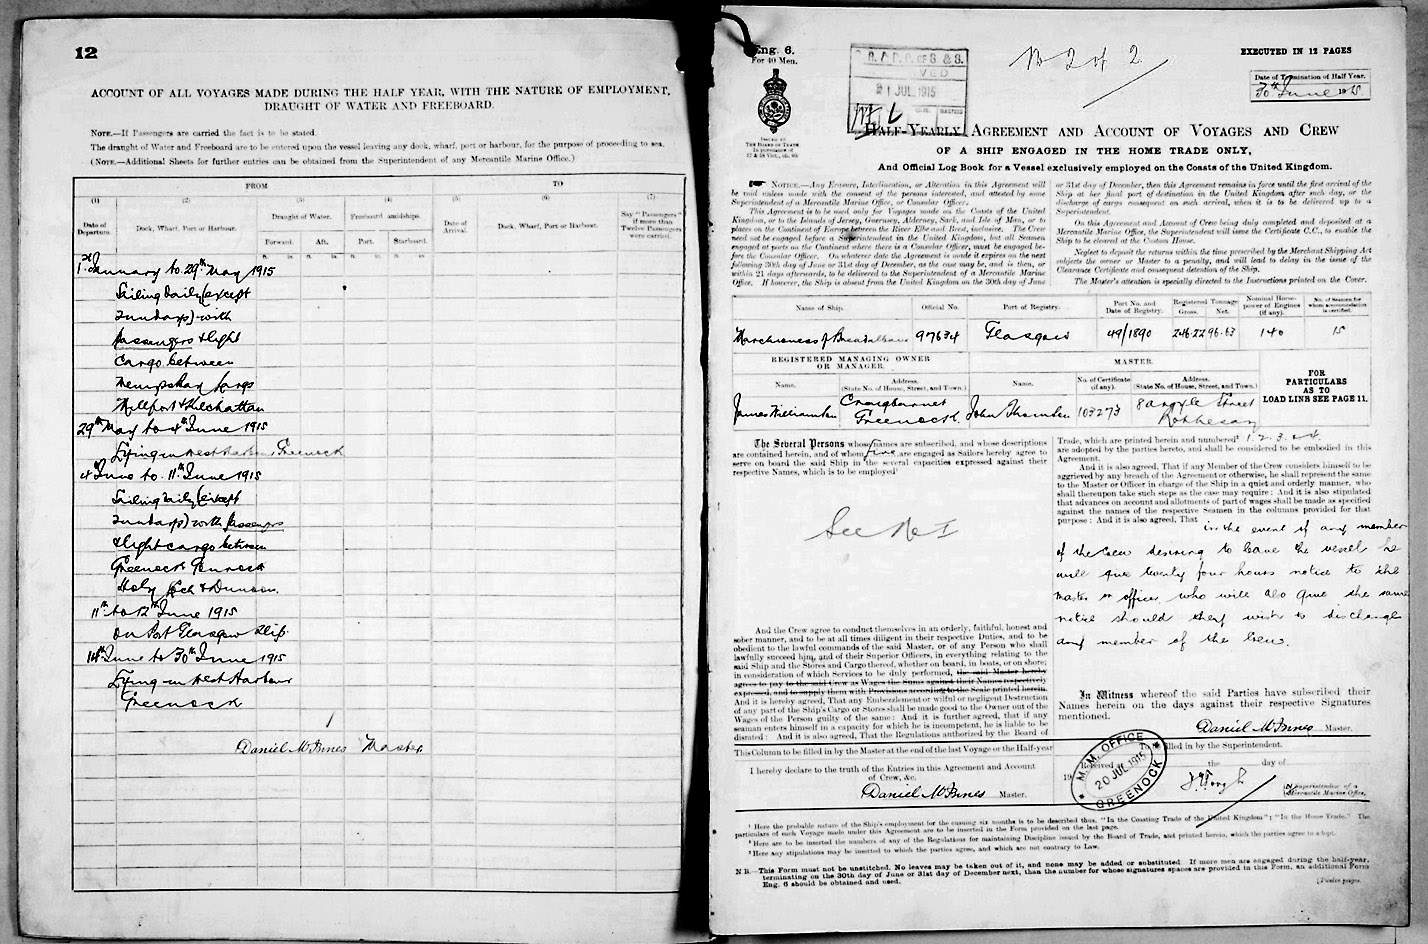 12
ACCOUNT OF ALL VOYAGES MADE DURING THE HALF YEAR, WITH THE NATURE OF EMPLOYMENT,
DRAUGHT OF WATER AND FREEBOARD.
NOTE.—If Passengers are carried the fact is to be stated.
The draught of Water and Freeboard are to be entered upon the vessel leaving any dock, wharf, port or harbour, for the purpose of proceeding to sea.
(NOTE.—Additional Sheets for further entries can be obtained from the Superintendent of any Mercantile Marine Office.)
FROM TO
(1) (2) (3) (4) (5) (6) (7)
Date of Departure. Dock, Wharf, Port or Harbour. Draught of Water. Freeboard amidships. Date of Arrival. Dock, Wharf, Port or Harbour. Say "Passengers" if more than Twelve Passengers were carried.
Forward. Aft. Port. Starboard.
ft. in. ft. in. ft. in. ft. in.
1st January to 29th May 1915
Sailing daily (except
Sundays) with
passengers & light
cargo between
Wemyss Bay Largs
Millport & Kilchattan
29th May to 4th June 1915
Lying in West Harbour Greenock
4th June to 11th June 1915
Sailing daily (except
Sundays) with passengers
& light cargo between
Greenock Gourock
Holy Loch & Dunoon.
11th to 12th June 1915
On Port Glasgow Slip.
14th June to 30th June 1915
Lying in West Harbour
Greenock
Daniel McInnes Master
Eng. 6.
For 40 Men.
ISSUED BY
THE BOARD OF TRADE
21 JUL 1915
No 2 of 2
EXECUTED IN 12 PAGES
Date of Termination of Half Year.
30th June 1915
HALF-YEARLY AGREEMENT AND ACCOUNT OF VOYAGES AND CREW
OF A SHIP ENGAGED IN THE HOME TRADE ONLY,
And Official Log Book for a Vessel exclusively employed on the Coasts of the United Kingdom.
NOTICE.—Any Erasure, Interlineation, or Alteration in this Agreement will
be void unless made with the consent of the persons interested, and attested by some
Superintendent of a Mercantile Marine Office, or Consular Officer.
This Agreement is to be used only for Voyages made on the Coasts of the United
Kingdom, or to the Islands of Jersey, Guernsey, Alderney, Sark, and Isle of Man, or to
places on the Continent of Europe between the River Elbe and Brest, inclusive. The Crew
need not be engaged before a Superintendent in the United Kingdom, but all Seamen
engaged at ports on the Continent where there is a Consular Officer, must be engaged be-
fore the Consular Officer. On whatever date the Agreement is made it expires on the next
following 30th day of June or 31st day of December, as the case may be, and is then, or
within 21 days afterwards, to be delivered to the Superintendent of a Mercantile Marine
Office. If however, the Ship is absent from the United Kingdom on the 30th day of June
or 31st day of December, then this Agreement remains in force until the first arrival of the
Ship at her final port of destination in the United Kingdom after such day, or the
discharge of cargo consequent on such arrival, when it is to be delivered up to a
Superintendent.
On this Agreement and Account of Crew being duly completed and deposited at a
Mercantile Marine Office, the Superintendent will issue the Certificate C.C., to enable the
Ship to be cleared at the Custom House.
Neglect to deposit the returns within the time prescribed by the Merchant Shipping Act
subjects the owner or Master to a penalty, and will lead to delay in the issue of the
Clearance Certificate and consequent detention of the Ship.
The Master's attention is specially directed to the Instructions printed on the Cover.
Name of Ship. Official No. Port of Registry. Port No. and Date of Registry. Registered Tonnage Gross. Net. Nominal Horse-power of Engines (if any). No. of Seamen for whom accommodation is certified.
Marchioness of Breadalbane 97634 Glasgow 49/1890 246.22 96.63 140 15
REGISTERED MANAGING OWNER OR MANAGER. MASTER.
Name. Address. (State No. of House, Street, and Town.) Name. No. of Certificate (if any). Address. (State No. of House, Street, and Town.)
FOR PARTICULARS AS TO LOAD LINE SEE PAGE 11.
James Williamson Craigbarnet Greenock. John 103273 8 Argyle Street Rothesay
The Several Persons whose names are subscribed, and whose descriptions
are contained herein, and of whom five are engaged as Sailors hereby agree to
serve on board the said Ship in the several capacities expressed against their
respective Names, which is to be employed¹
See No I
And the Crew agree to conduct themselves in an orderly, faithful, honest and
sober manner, and to be at all times diligent in their respective Duties, and to be
obedient to the lawful commands of the said Master, or of any Person who shall
lawfully succeed him, and of their Superior Officers, in everything relating to the
said Ship and the Stores and Cargo thereof, whether on board, in boats, or on shore;
in consideration of which Services to be duly performed, the said Master hereby
agrees to pay to the said Crew as Wages the Sums against their Names respectively
expressed, and to supply them with Provisions according to the Scale printed herein.
And it is hereby agreed, That any Embezzlement or wilful or negligent Destruction
of any part of the Ship's Cargo or Stores shall be made good to the Owner out of the
Wages of the Person guilty of the same: And it is further agreed, that if any
seaman enters himself in a capacity for which he is incompetent, he is liable to be
disrated: And it is also agreed, That the Regulations authorized by the Board of
Trade, which are printed herein and numbered² 1. 2. 3. & 4.
are adopted by the parties hereto, and shall be considered to be embodied in this
Agreement.
And it is also agreed, That if any Member of the Crew considers himself to be
aggrieved by any breach of the Agreement or otherwise, he shall represent the same
to the Master or Officer in charge of the Ship in a quiet and orderly manner, who
shall thereupon take such steps as the case may require: And it is also stipulated
that advances on account and allotments of part of wages shall be made as specified
against the names of the respective Seamen in the columns provided for that
purpose: And it is also agreed, That in the event of any member
of the Crew desiring to leave the vessel he
will give twenty four hours notice to the
Master or officer, who will also give the same
notice should they wish to discharge
any member of the Crew.
In Witness whereof the said Parties have subscribed their
Names herein on the days against their respective Signatures
mentioned.
Daniel McInnes Master.
This Column to be filled in by the Master at the end of the last Voyage or the Half-year
I hereby declare to the truth of the Entries in this Agreement and Account
of Crew, &c.
Daniel McInnes Master.
To be filled in by the Superintendent.
Received the day of
19
M.M. OFFICE
20 JUL 1915
GREENOCK
Superintendent of a
Mercantile Marine Office.
¹ Here the probable nature of the Ship's employment for the ensuing six months is to be described thus, "In the Coasting Trade of the United Kingdom"; "In the Home Trade." The
particulars of each Voyage made under this Agreement are to be inserted in the Form provided on the last page.
² Here are to be inserted the numbers of any of the Regulations for maintaining Discipline issued by the Board of Trade, and printed herein, which the parties agree to adopt.
³ Here any stipulations may be inserted to which the parties agree, and which are not contrary to Law.
N.B.—This Form must not be unstitched. No leaves may be taken out of it, and none may be added or substituted. If more men are engaged during the half-year,
terminating on the 30th day of June or 31st day of December next, than the number for whose signatures spaces are provided in this Form, an additional Form
Eng. 6 should be obtained and used.
[Twelve pages.